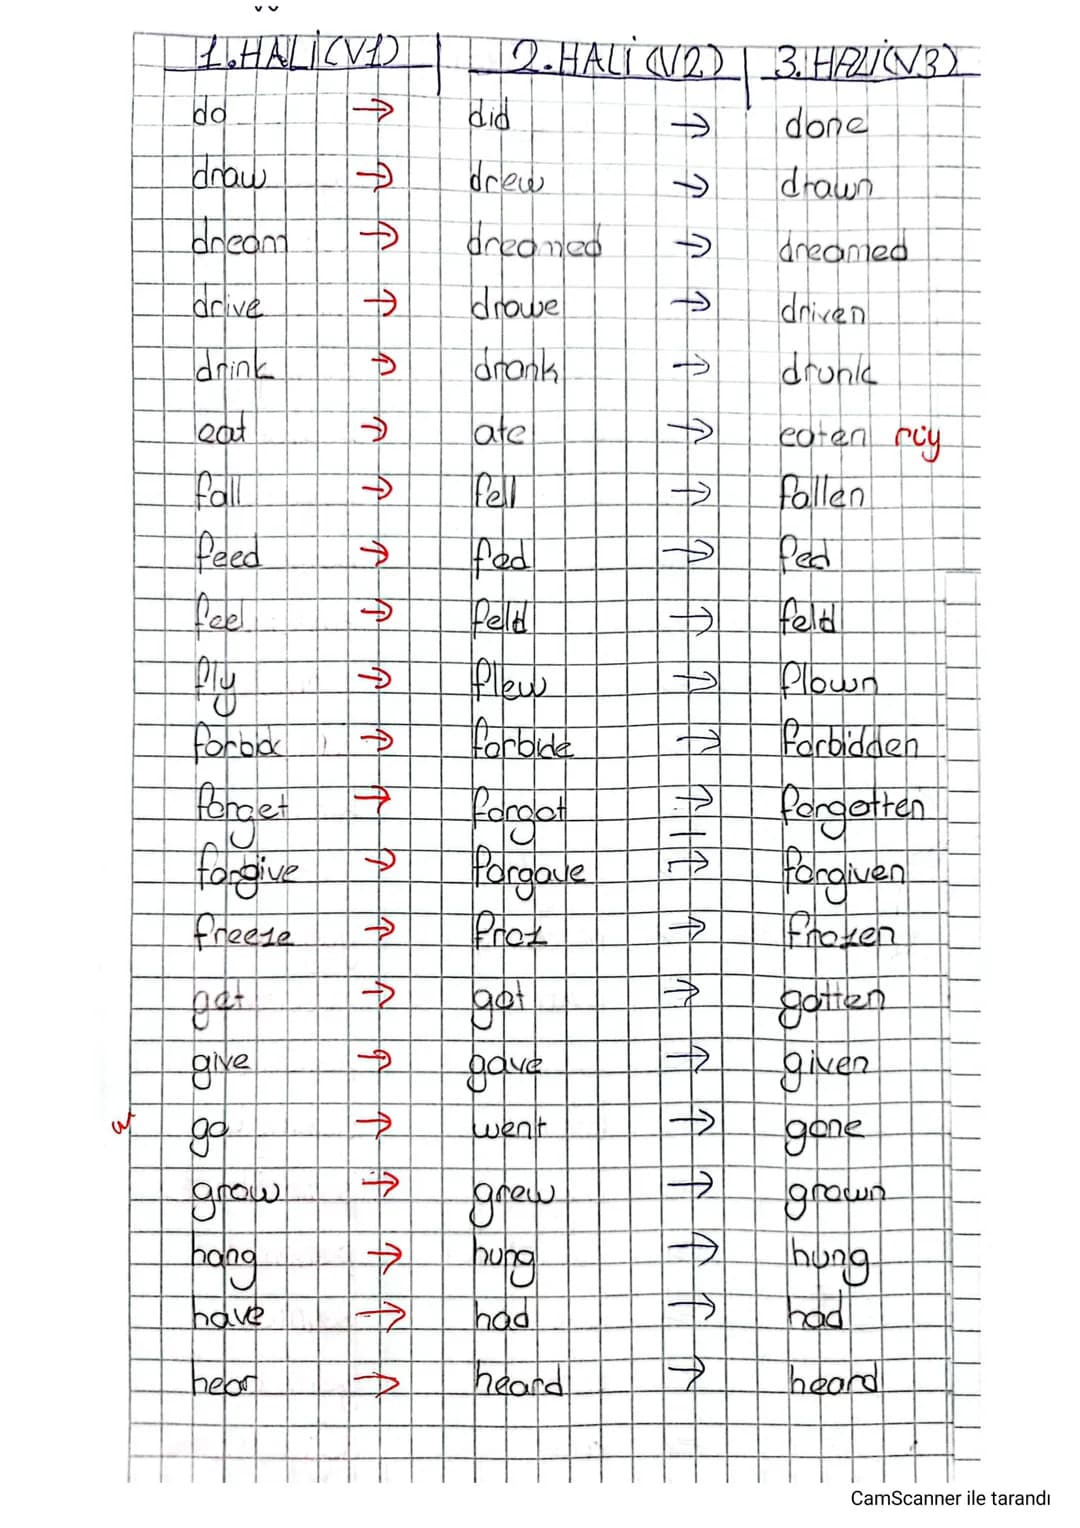 1.HALİ(V1) 2.HALİ(V2) 3.HALİ(V3)
do → did → done
draw → drew → drawn
dream → dreamed → dreamed
drive → drowe → driven
drink → drank → drunk
eat → ate → eaten
fall → fell → fallen
feed → fed → fed
feel → feld → feld
fly → flew → flown
→ forbide → forbidden
forget → forgot → forgotten
forgive → forgave → forgiven
freeze → froz → frozen
get → got → gotten
give → gave → given
go → went → gone
grow → grew → grown
hang → hung → hung
have → had → had
hear → heard → heard
CamScanner ile tarandı